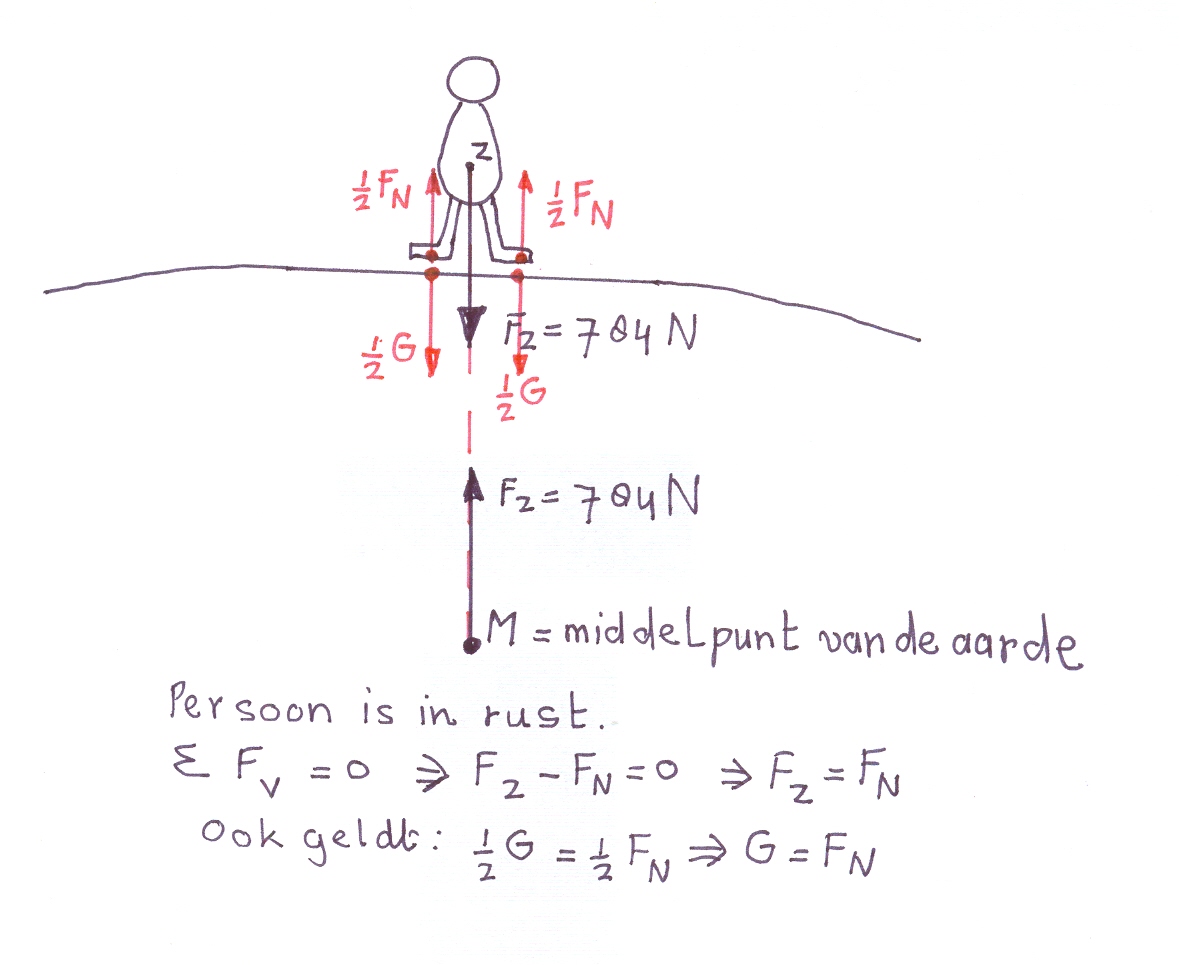 z
½FN
½FN
Fz = 784 N
½G
½G
Fz = 784 N
M = middelpunt van de aarde
Persoon is in rust.
Σ Fv = 0 ⇒ Fz - FN = 0 ⇒ Fz = FN
Ook geldt: ½G = ½ FN ⇒ G = FN